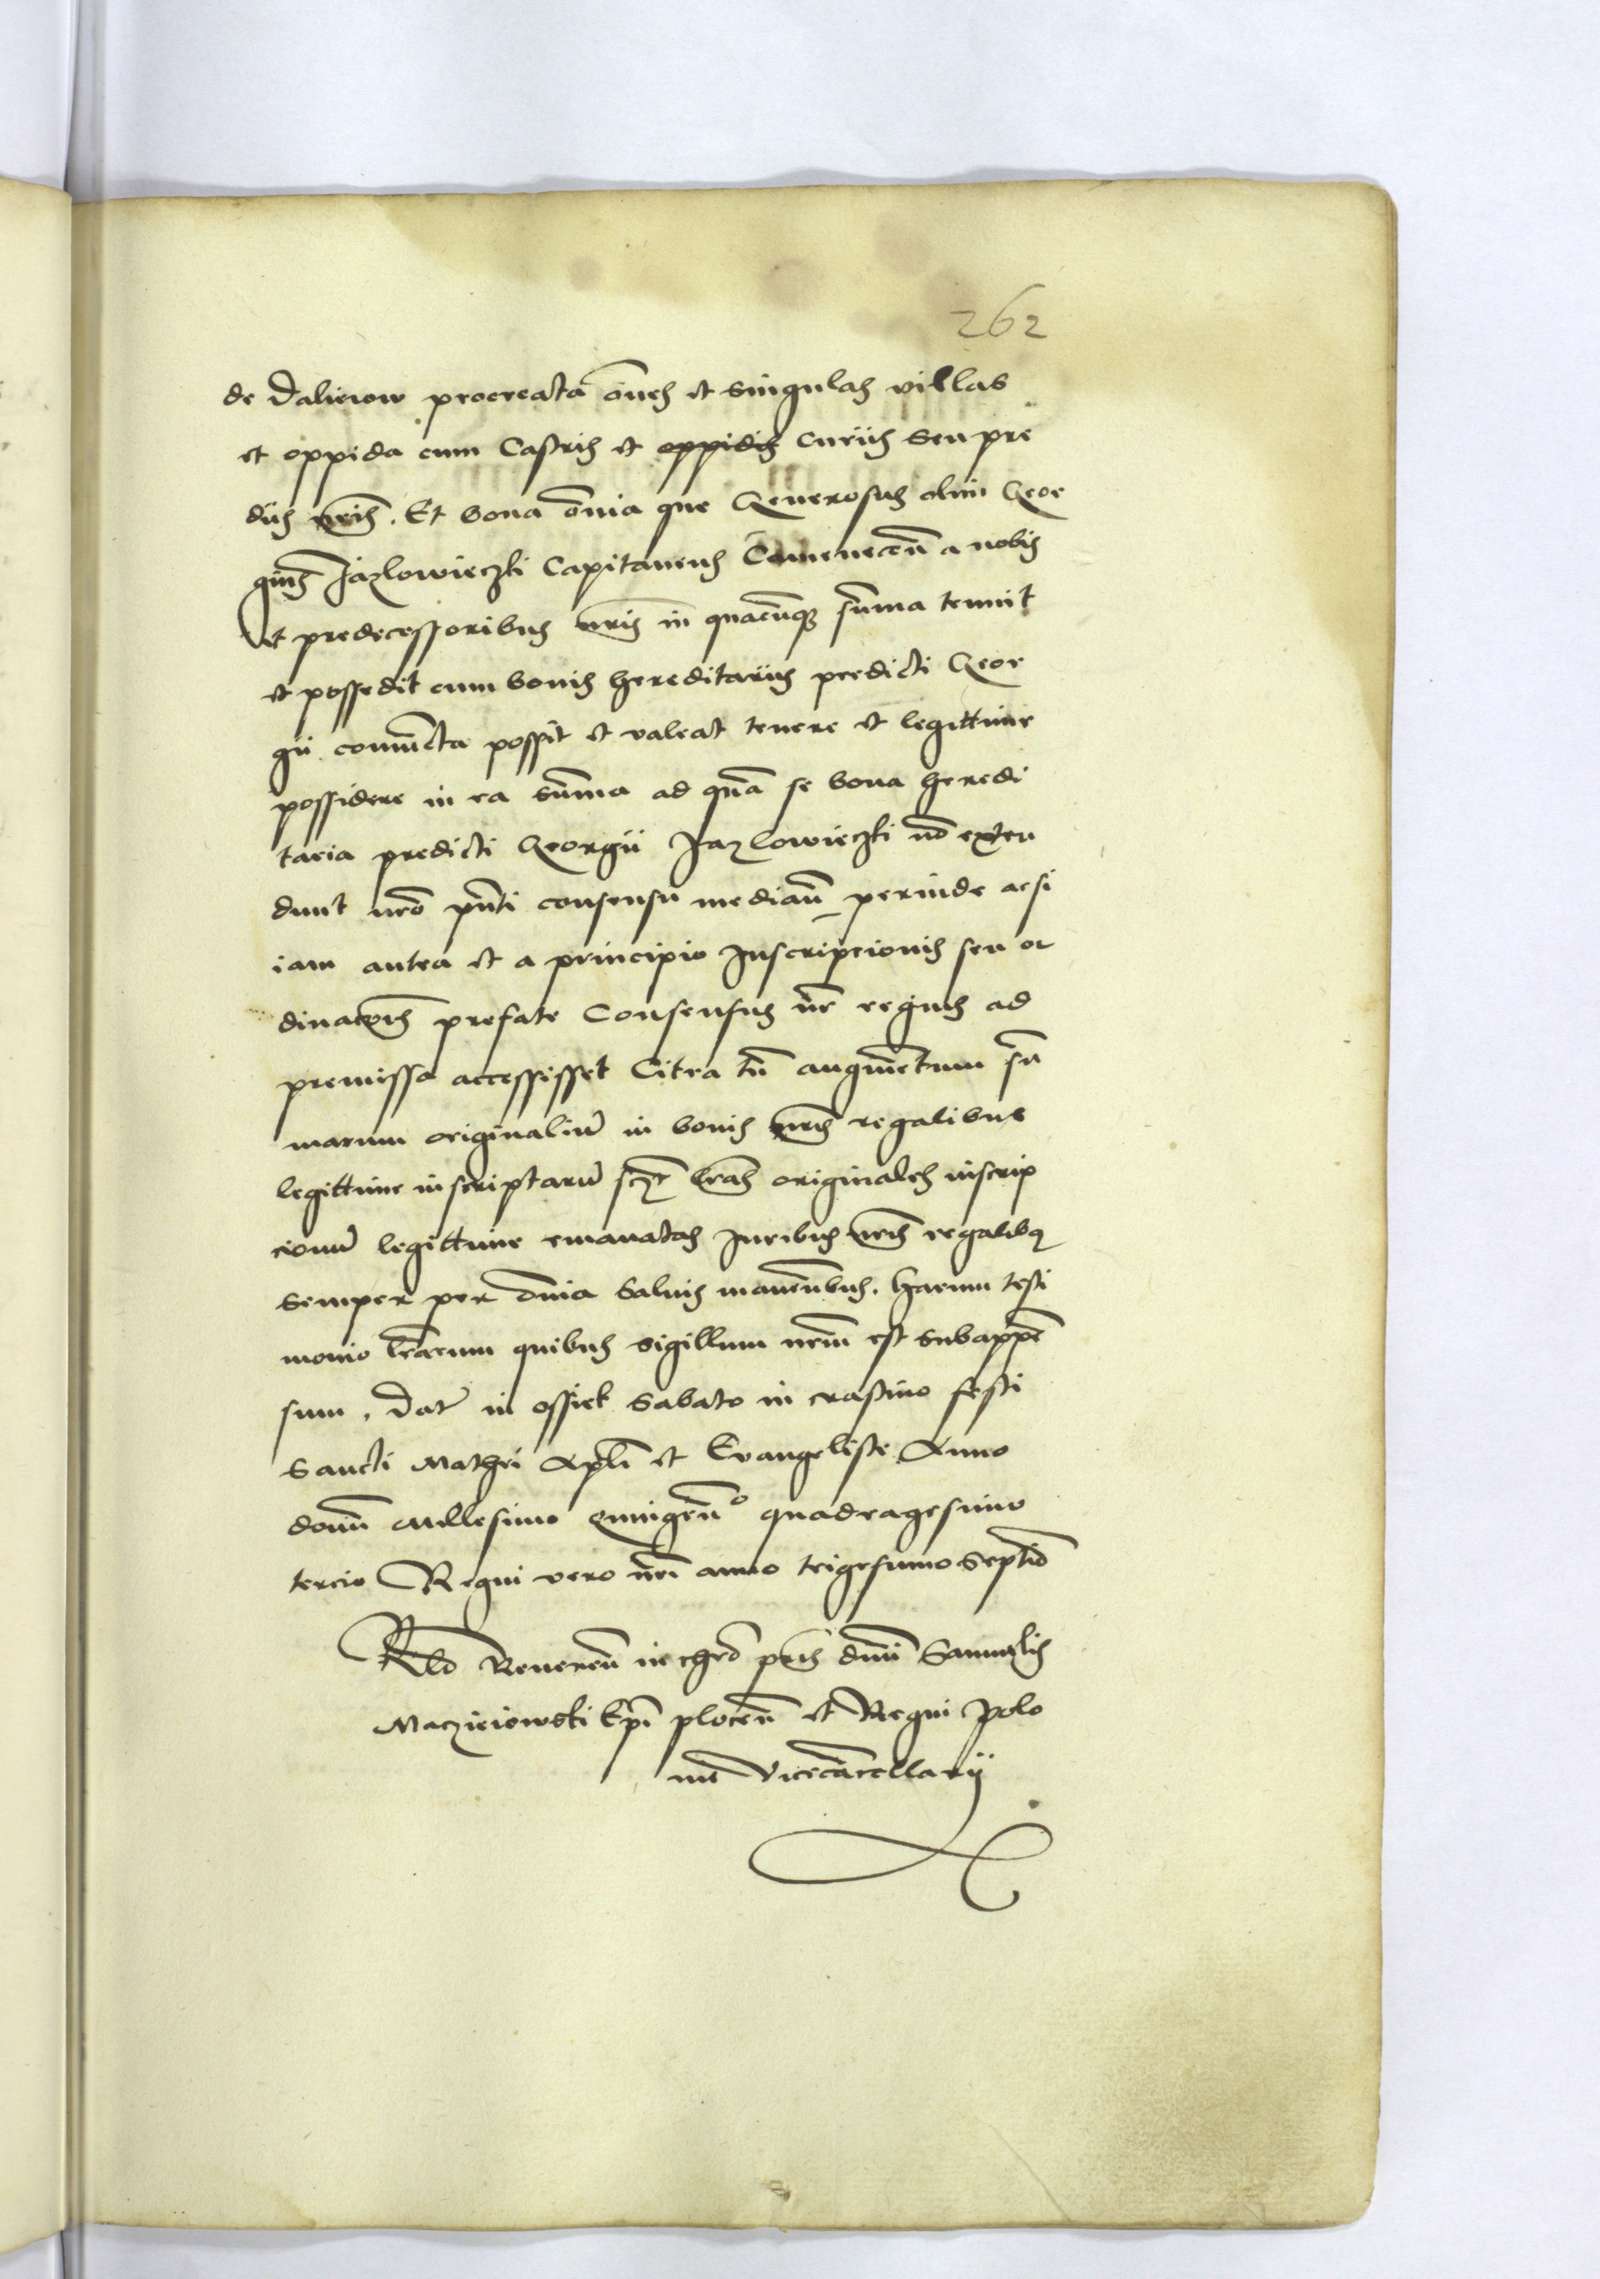 262
de Dalieiow procreata ōnes et singulas villas
et oppida cum Castris et oppidis curiis seu pre
diis nris. Et bona ōnia que Generosus olim Geor
gius Jazlowieczki Capitaneus Camenecen a nobis
et predecessoribus nris in quacunq summa tenuit
et possedit cum bonis hereditariis predicti Geor
gii coniuncta possit et valeat tenere et legittime
possidere in ea summa ad quā se bona heredi
taria predicti Georgii Jazlowieczki nō exten
dunt nrō pnti consensu median perinde acsi
iam antea et a principio Inscripcionis seu or
dinacōis prefate Consensus nr regius ad
premissa accessisset Citra tn augmentum sum
marum originaliū in bonis nris regalibus
legittime inscriptarū lras originales inscrip
cionū legittime emanatas Juribus nris regalibus
semper per ōnia saluis manentibus. Harum testi
monio lrarum quibus sigillum nrum est subappen
sum. Dat in ossiek Sabato in crastino festi
Sancti Mathei Apli et Evangeliste Anno
domini Millesimo quingen° quadragesimo
tercio Regni vero nri anno trigesimo septimo
Rlo Reveren in chro pris dni Samuelis
Maczieiowski Epi plocen et Regni Polo
nie Vicecancellarij